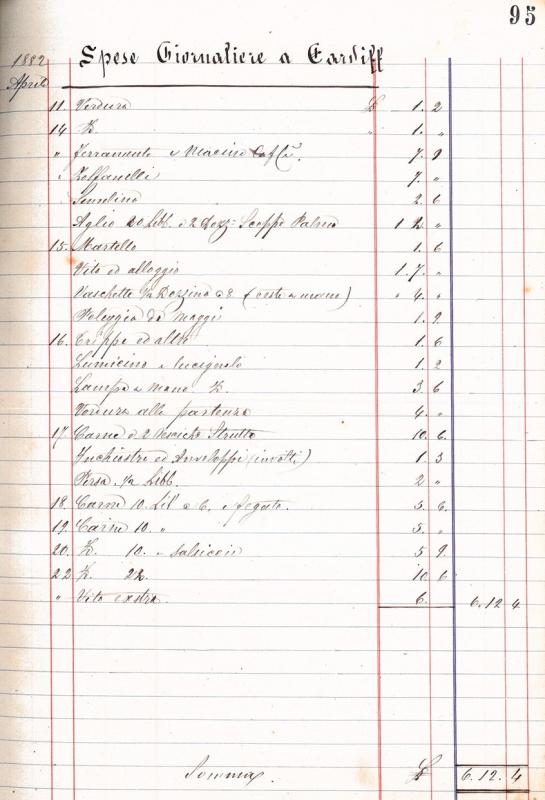 95
Spese Giornaliere a Cardiff
1882
Aprile
11. Verdura £ 1. 2
14 K. " 1. "
" Ferramento e Macino Caffè. 7. 9
" Zolfanelli 7. "
2. 6
Aglio 20 Libb. e 2 Dozz= Scoppe Palma 1 2. "
15. Martello 1. 6
Vito ed alloggio 1. 7. "
Vaschette 1/2 Dozzina a 8 (ceste a mano) " 4. "
Poleggia da Maggi 1. 9
16. Trippe ed altro 1. 6
Lumicino e lucignolo 1. 2
Lampa a mano K. 3. 6
Verdura alla partenza 4. "
17. Carne e 2 Strutto 10. 6.
Inchiostro ed Anveloppi (involti) 1 3
Persa 1/2 Libb. 2 "
18. Carne 10. Lib a 6. e fegato. 5. 6.
19. Carne 10. " 5. "
20. K. 10. e salsicce 5 9.
22 K. 22. 10. 6
" Vito extra 6. 6. 12 4
Somma £ 6. 12. 4